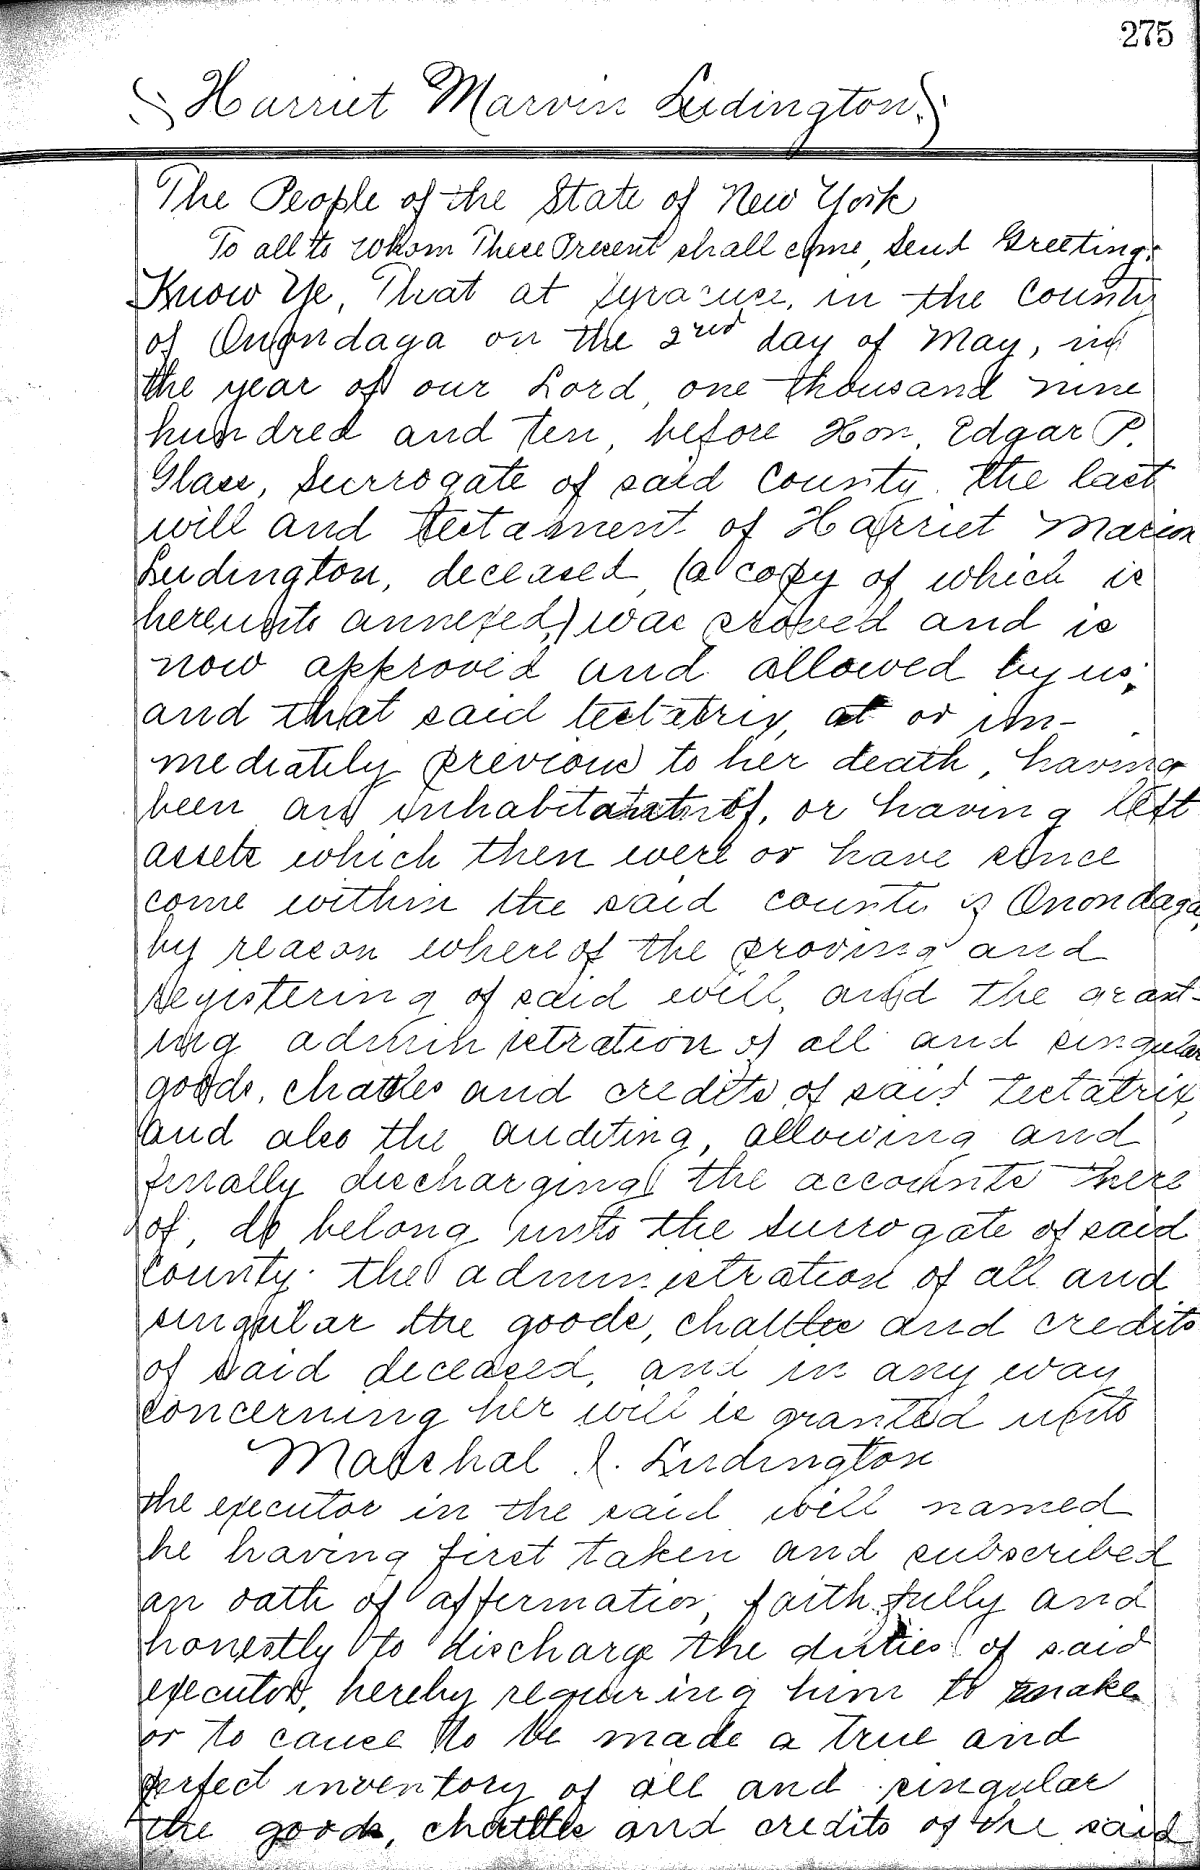 275
Harriet Marvin Ludington.
The People of the State of New York
To all to whom These Present shall come, Send Greeting:
Know Ye, That at Syracuse, in the County
of Onondaga on the 2nd day of May, in
the year of our Lord, one thousand nine
hundred and ten, before Hon. Edgar P.
Glass, Surrogate of said County. the last
will and testament of Harriet Marvin
Ludington, deceased, (a copy of which is
hereunto annexed,) was proved and is
now approved and allowed by us;
and that said testatrix, at or im-
mediately previous to her death, having
been an inhabitant of, or having left
assets which then were or have since
come within the said county of Onondaga,
by reason whereof the proving and
registering of said will, and the grant-
ing administration of all and singular
goods, chattles and credits of said testatrix,
and also the auditing, allowing and
finally discharging the accounts there
of, do belong unto the surrogate of said
county. the administration of all and
singular the goods, chattles and credits
of said deceased, and in any way
concerning her will is granted unto
Marshal I. Ludington
the executor in the said will named
he having first taken and subscribed
an oath of affirmation, faithfully and
honestly to discharge the duties of said
executor, hereby requiring him to make
or to cause to be made a true and
perfect inventory of all and singular
the goods, chattles and credits of the said